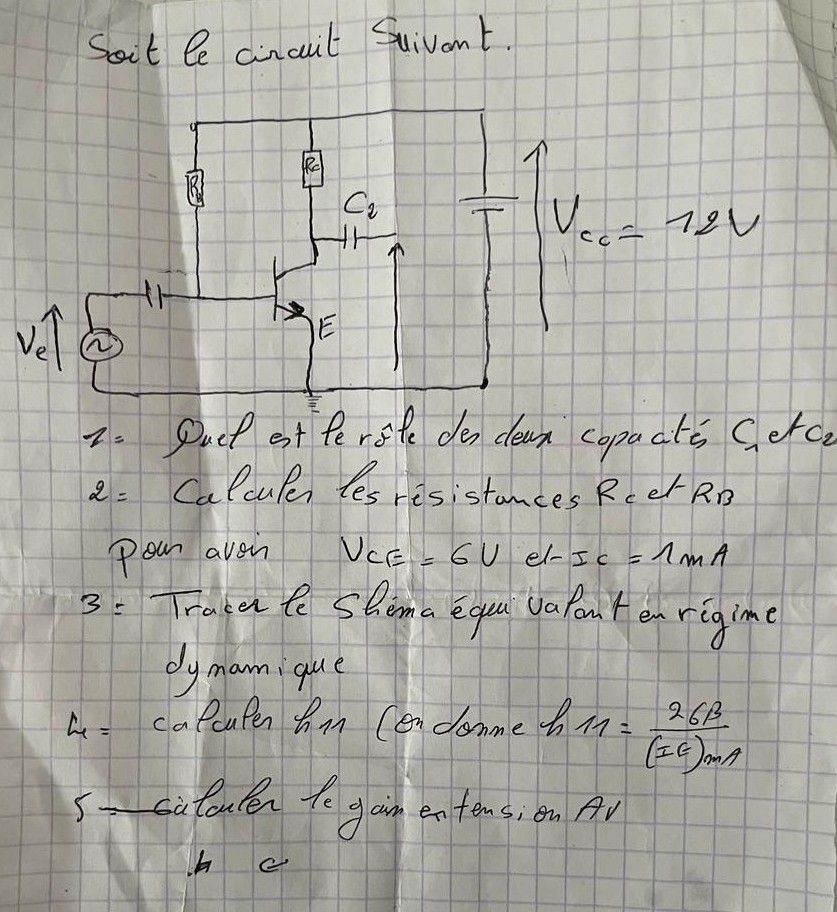 Soit le circuit Suivant.
RB
Rc
C2
Vcc = 12V
Ve
E
1= Quel est le rôle des deux capacités C1 et C2
2= Calculer les résistances Rc et RB
pour avoir VCE = 6V et Ic = 1mA
3= Tracer le Shéma équivalant en régime
dynamique
4= calculer h11 (on donne h11 = 26β / (IE)mA
5 calculer le gain en tension AV